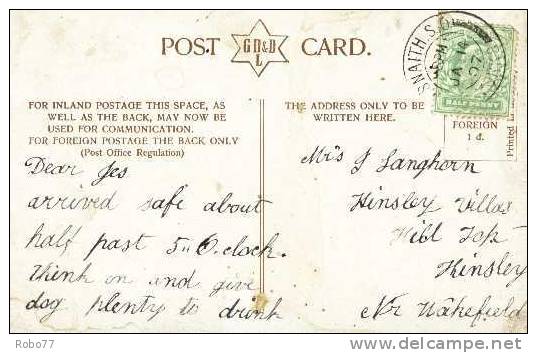 POST CARD.
G D & D
L
SNAITH. S.O.
JA
07
HALF PENNY
FOREIGN
1 d.
Printed
FOR INLAND POSTAGE THIS SPACE, AS
WELL AS THE BACK, MAY NOW BE
USED FOR COMMUNICATION.
FOR FOREIGN POSTAGE THE BACK ONLY
(Post Office Regulation)
THE ADDRESS ONLY TO BE
WRITTEN HERE.
Dear Jes
arrived safe about
half past 5..O.clock.
think on and give
dog plenty to drink
Mrs J Langhorn
Hinsley Villas
Hill Top
Hinsley
Nr Wakefield
Robo77
www.delcampe.net